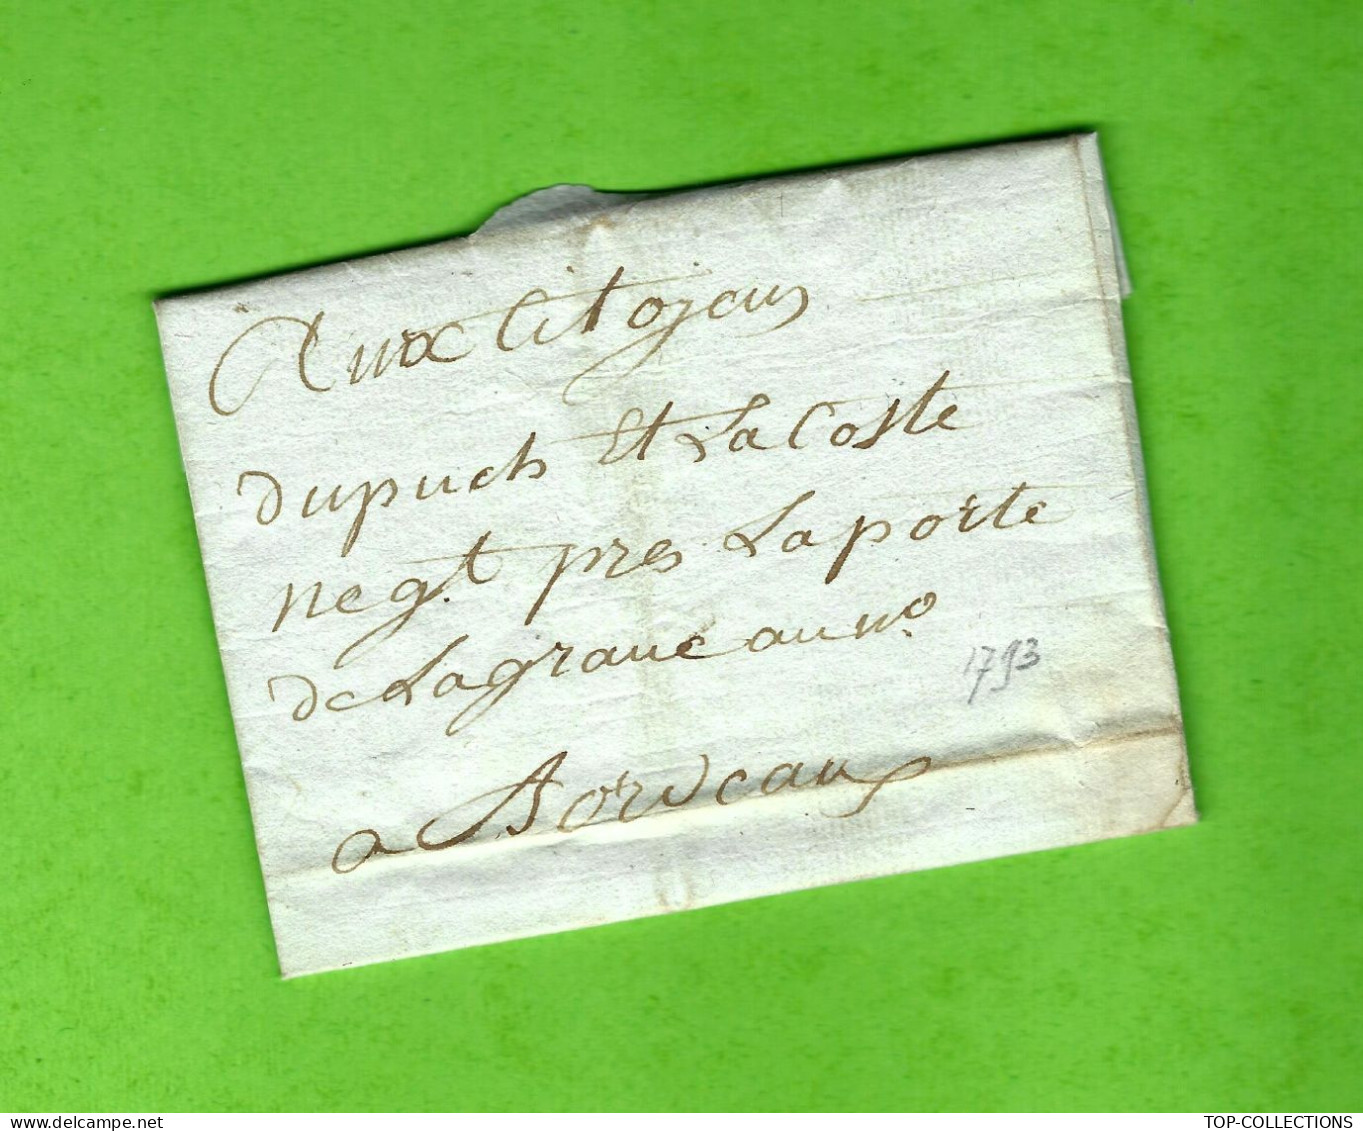 Aux Citoyens
dupuch Et LaCoste
negt. pres La porte
de Lagrave au no.
a Bordeaux
1793
TOP-COLLECTIONS